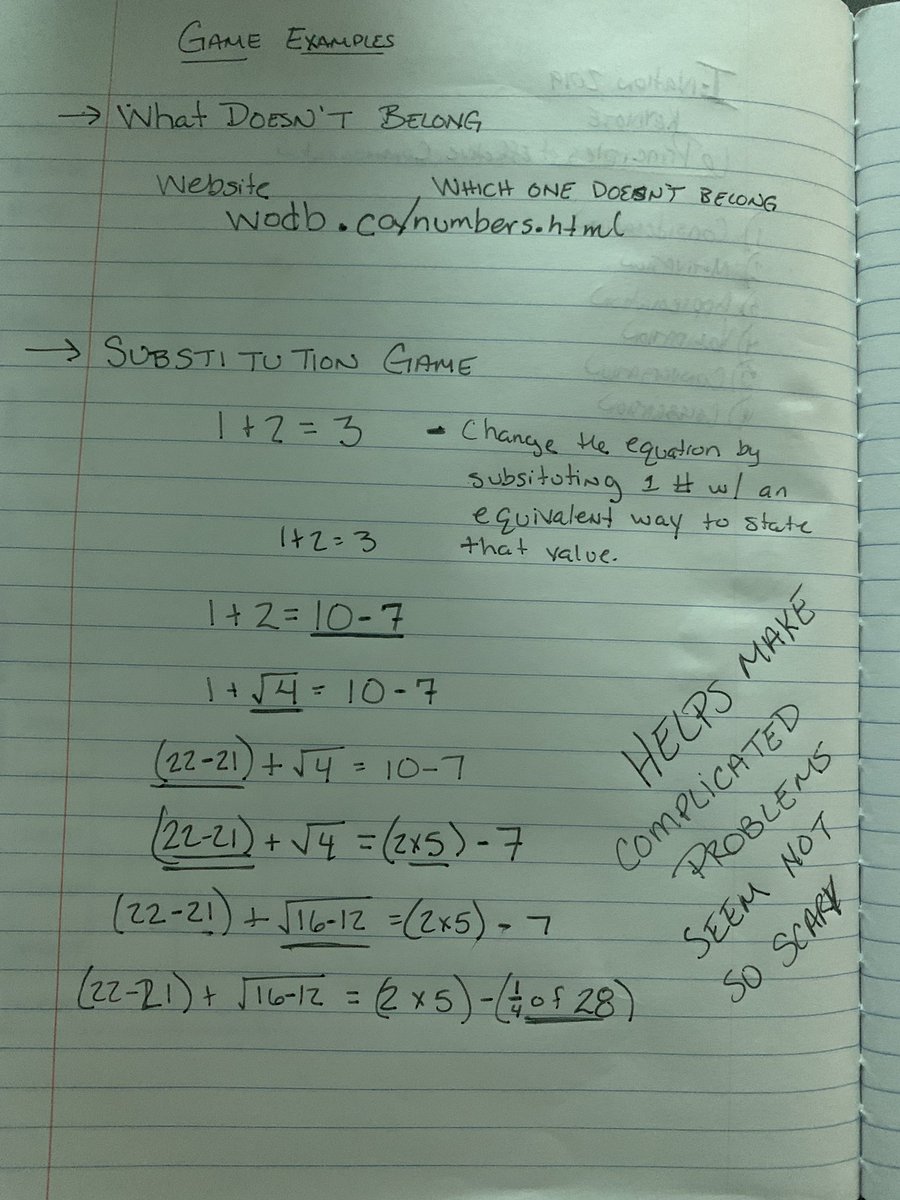 GAME EXAMPLES
→ What DOESN'T BELONG
Website WHICH ONE DOESN'T BELONG
wodb.ca/numbers.html
→ SUBSTITUTION GAME
1 + 2 = 3 - Change the equation by
subsituting 1 # w/ an
equivalent way to state
that value.
1+2=3
1 + 2 = 10 - 7
1 + √4 = 10 - 7
(22-21) + √4 = 10-7
(22-21) + √4 = (2x5) - 7
(22-21) + √16-12 = (2x5) - 7
(22-21) + √16-12 = (2 x 5) - (1/4 of 28)
HELPS MAKE
COMPLICATED
PROBLEMS
SEEM NOT
SO SCARY